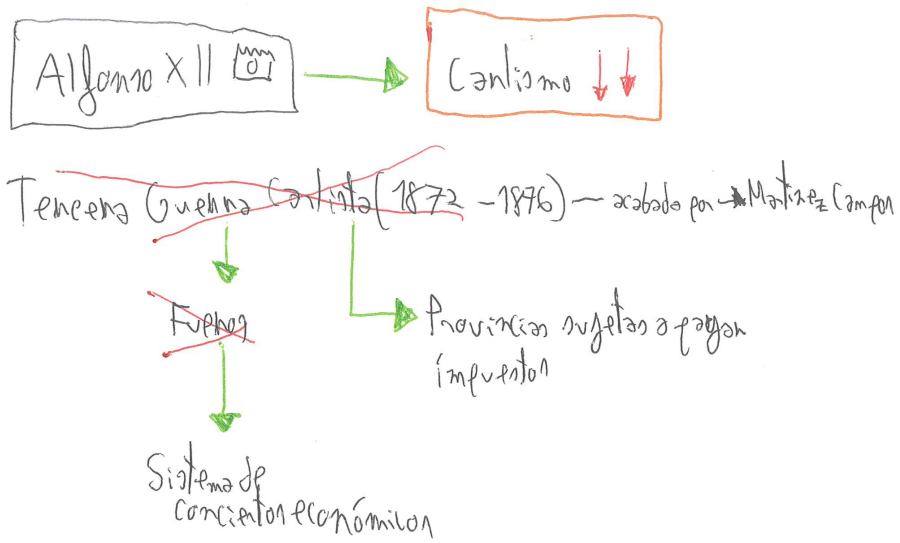 Alfonso XII
Carlismo
Tercera Guerra Carlista (1872-1876) — acabado por → Martínez Campos
Fueros
Provincias sujetas a pagar
impuestos
Sistema de
conciertos económicos